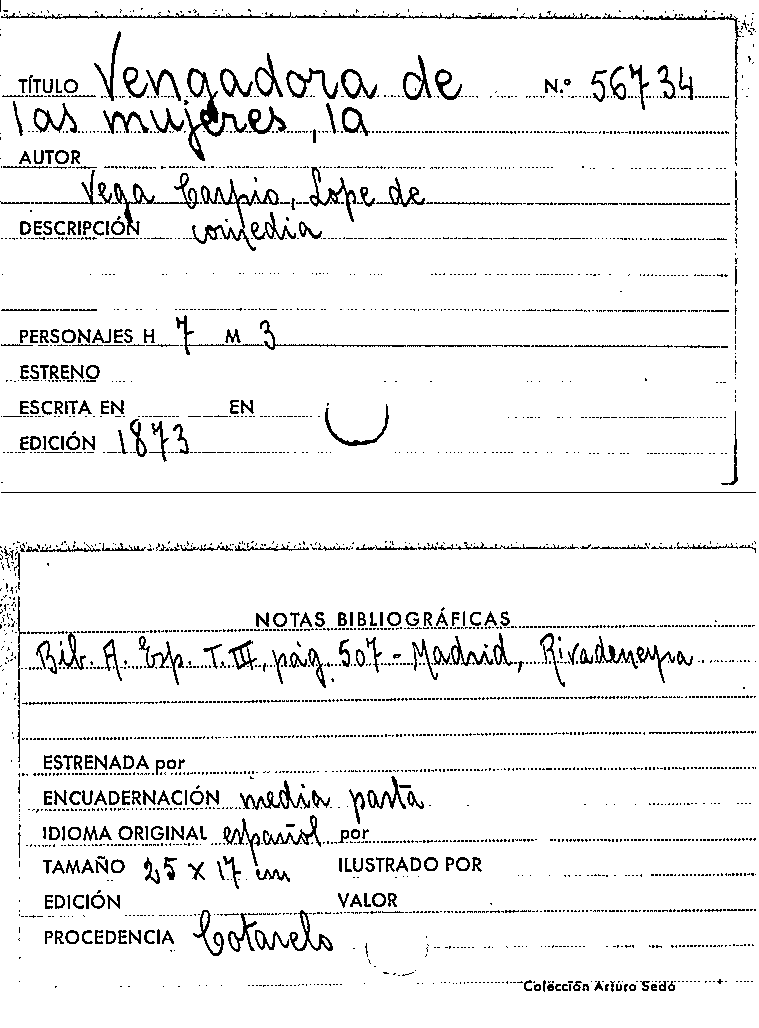 TÍTULO Vengadora de N.º 56734
las mujeres, la
AUTOR
Vega Carpio, Lope de
DESCRIPCIÓN comedia
PERSONAJES H 7 M 3
ESTRENO
ESCRITA EN EN
EDICIÓN 1873
NOTAS BIBLIOGRÁFICAS
Bib. A. Esp. T. III, pág. 507 - Madrid, Rivadeneyra
ESTRENADA por
ENCUADERNACIÓN media pasta
IDIOMA ORIGINAL español por
TAMAÑO 25 x 17 cm ILUSTRADO POR
EDICIÓN VALOR
PROCEDENCIA Cotarelo
Colección Arturo Sedó